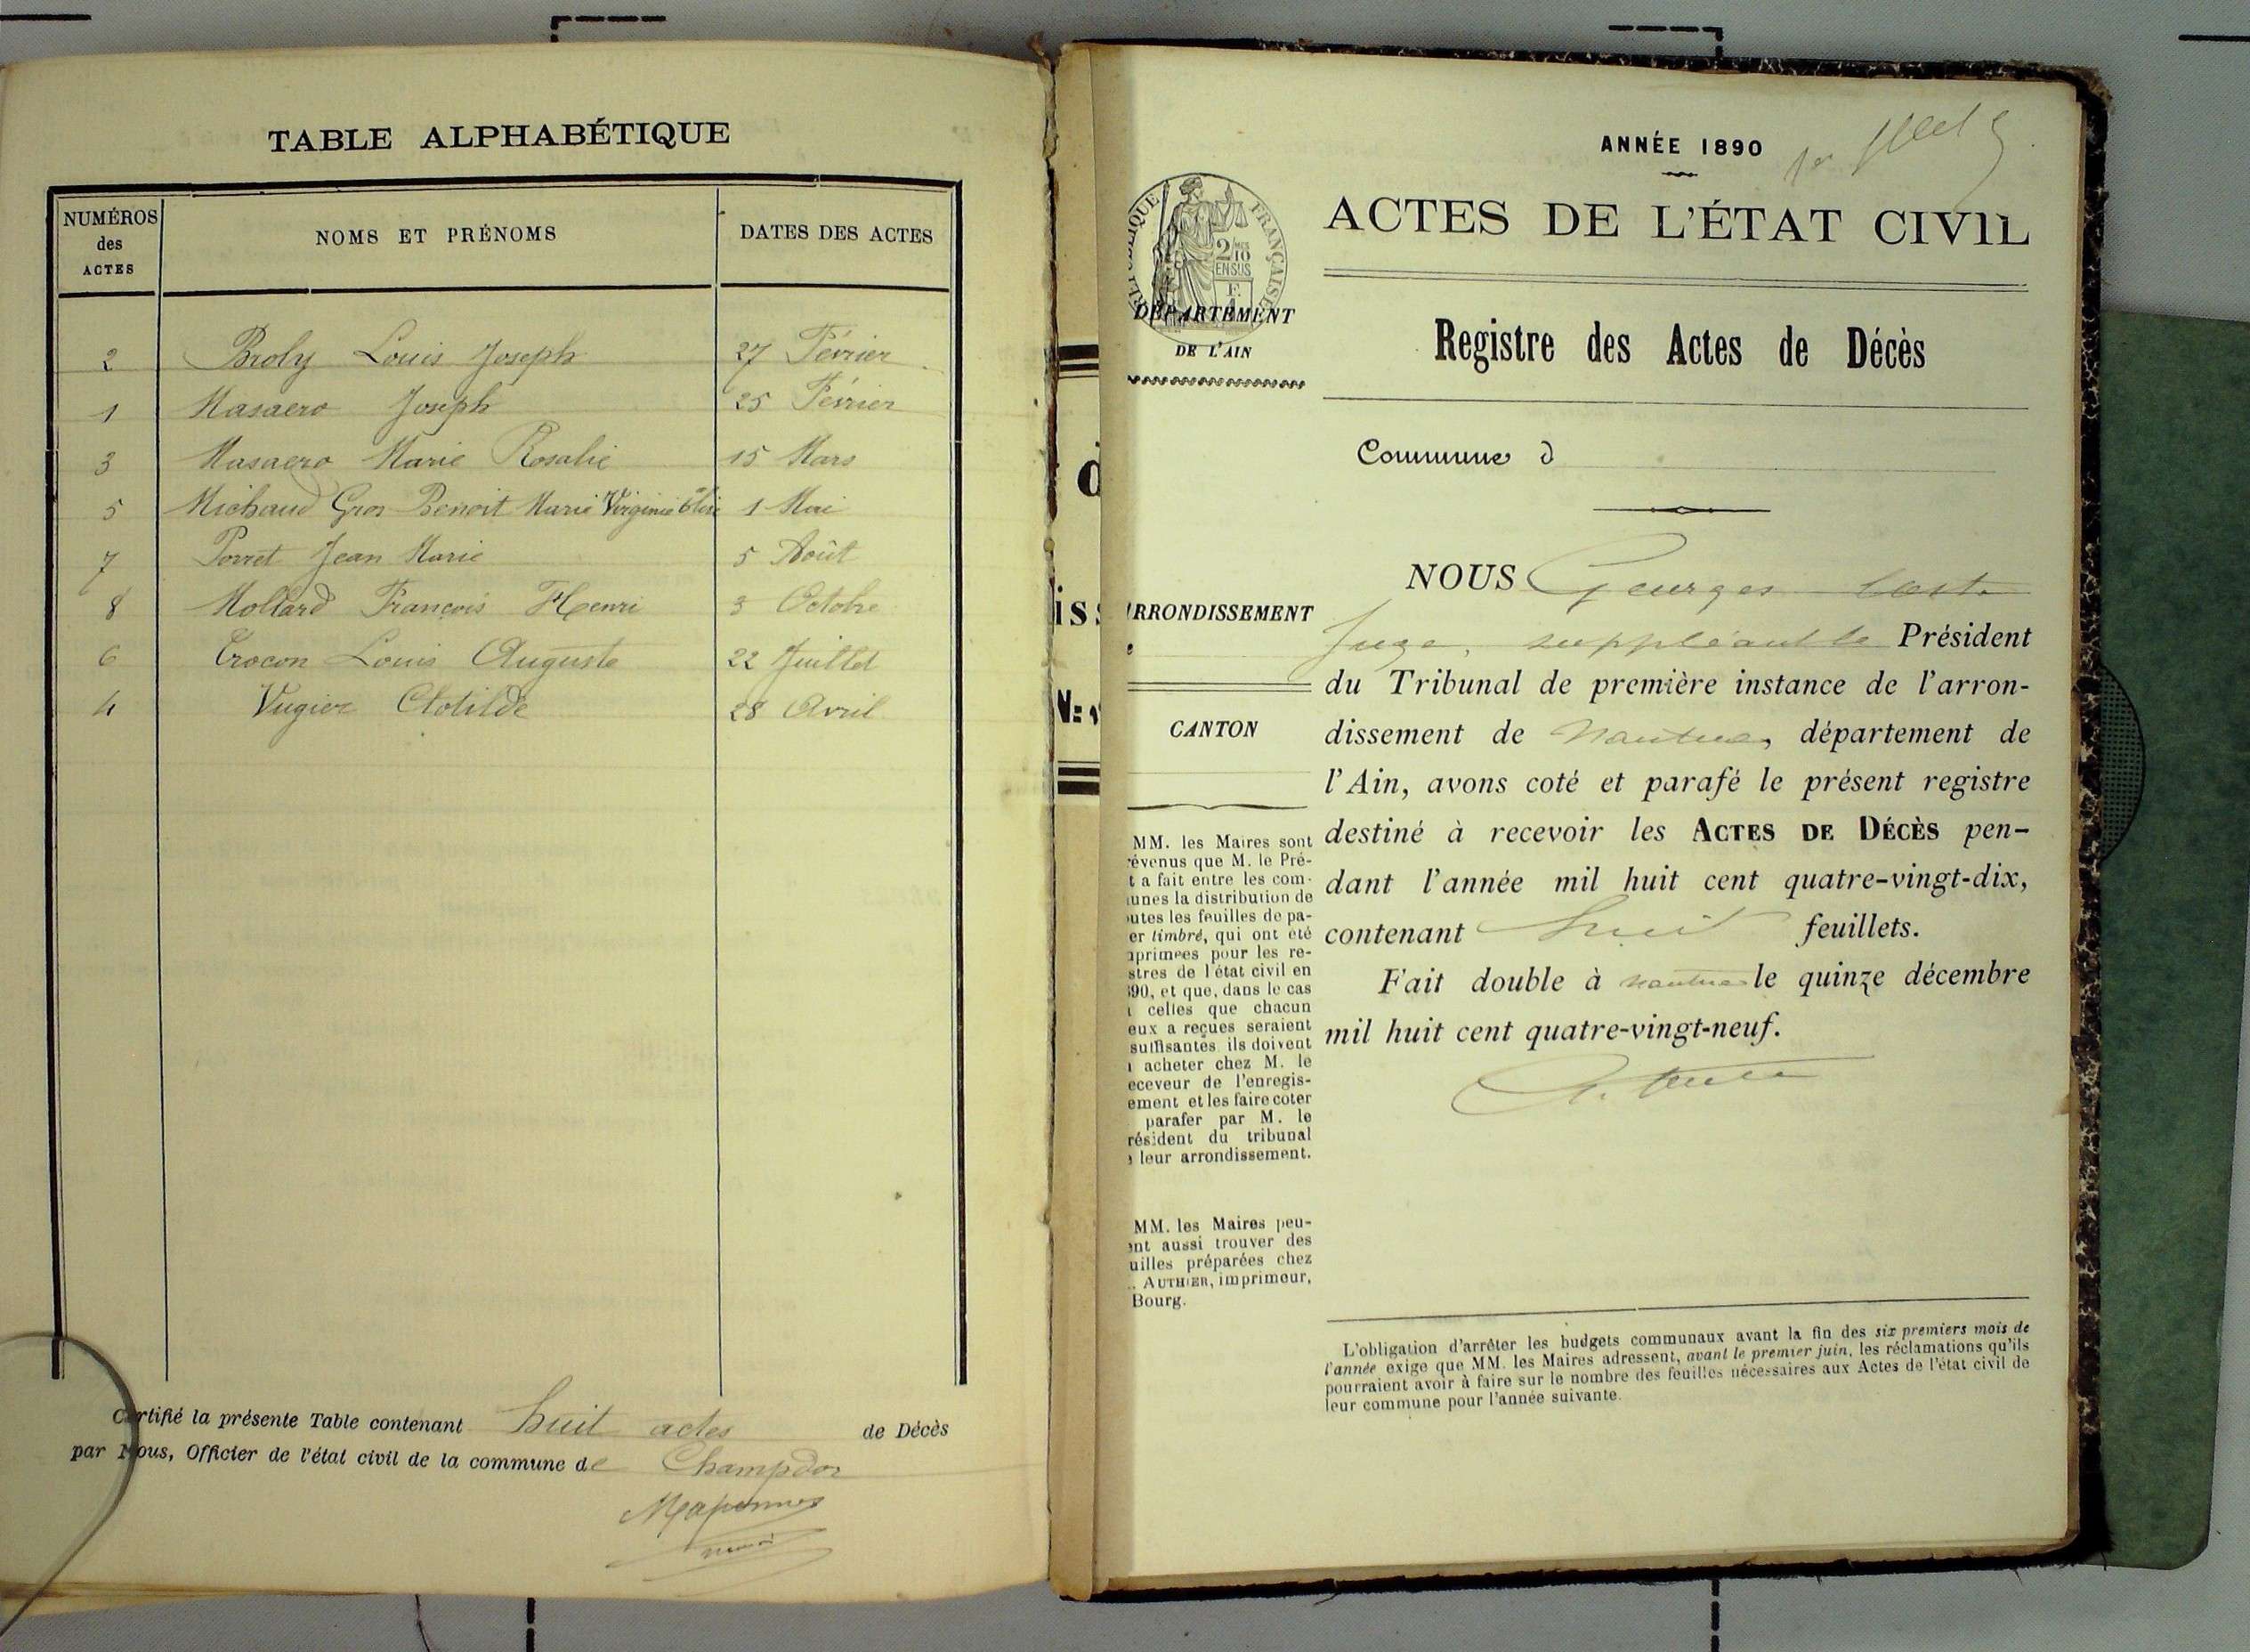 TABLE ALPHABÉTIQUE
NUMÉROS des ACTES
NOMS ET PRÉNOMS
DATES DES ACTES
2 Broly Louis Joseph 27 Février
1 Masaero Joseph 25 Février
3 Masaero Marie Rosalie 15 Mars
5 Michaud Gros Benoit Marie Virginie Élise 1 Mai
7 Porret Jean Marie 5 Août
8 Mollard François Henri 3 Octobre
6 Crocon Louis Auguste 22 Juillet
4 Vugier Clotilde 28 Avril
Certifié la présente Table contenant huit actes de Décès
par Nous, Officier de l'état civil de la commune de Champdor
ANNÉE 1890
1er
ACTES DE L'ÉTAT CIVIL
RÉPUBLIQUE FRANÇAISE
2/10 EN SUS
DÉPARTEMENT
DE L'AIN
Registre des Actes de Décès
Commune d
NOUS Georges
RRONDISSEMENT
Juge suppléant le Président
du Tribunal de première instance de l'arron-
CANTON
dissement de Nantua, département de
l'Ain, avons coté et parafé le présent registre
destiné à recevoir les ACTES DE DÉCÈS pen-
dant l'année mil huit cent quatre-vingt-dix,
contenant huit feuillets.
Fait double à Nantua le quinze décembre
mil huit cent quatre-vingt-neuf.
MM. les Maires sont
évenus que M. le Pré-
t a fait entre les com-
unes la distribution de
utes les feuilles de pa-
er timbré, qui ont été
primées pour les re-
stres de l'état civil en
90, et que, dans le cas
celles que chacun
eux a reçues seraient
suffisantes, ils doivent
acheter chez M. le
eceveur de l'enregis-
ement et les faire coter
parafer par M. le
résident du tribunal
leur arrondissement.
MM. les Maires peu-
ent aussi trouver des
uilles préparées chez
. AUTHIER, imprimeur,
Bourg.
L'obligation d'arrêter les budgets communaux avant la fin des six premiers mois de
l'année exige que MM. les Maires adressent, avant le premier juin, les réclamations qu'ils
pourraient avoir à faire sur le nombre des feuilles nécessaires aux Actes de l'état civil de
leur commune pour l'année suivante.